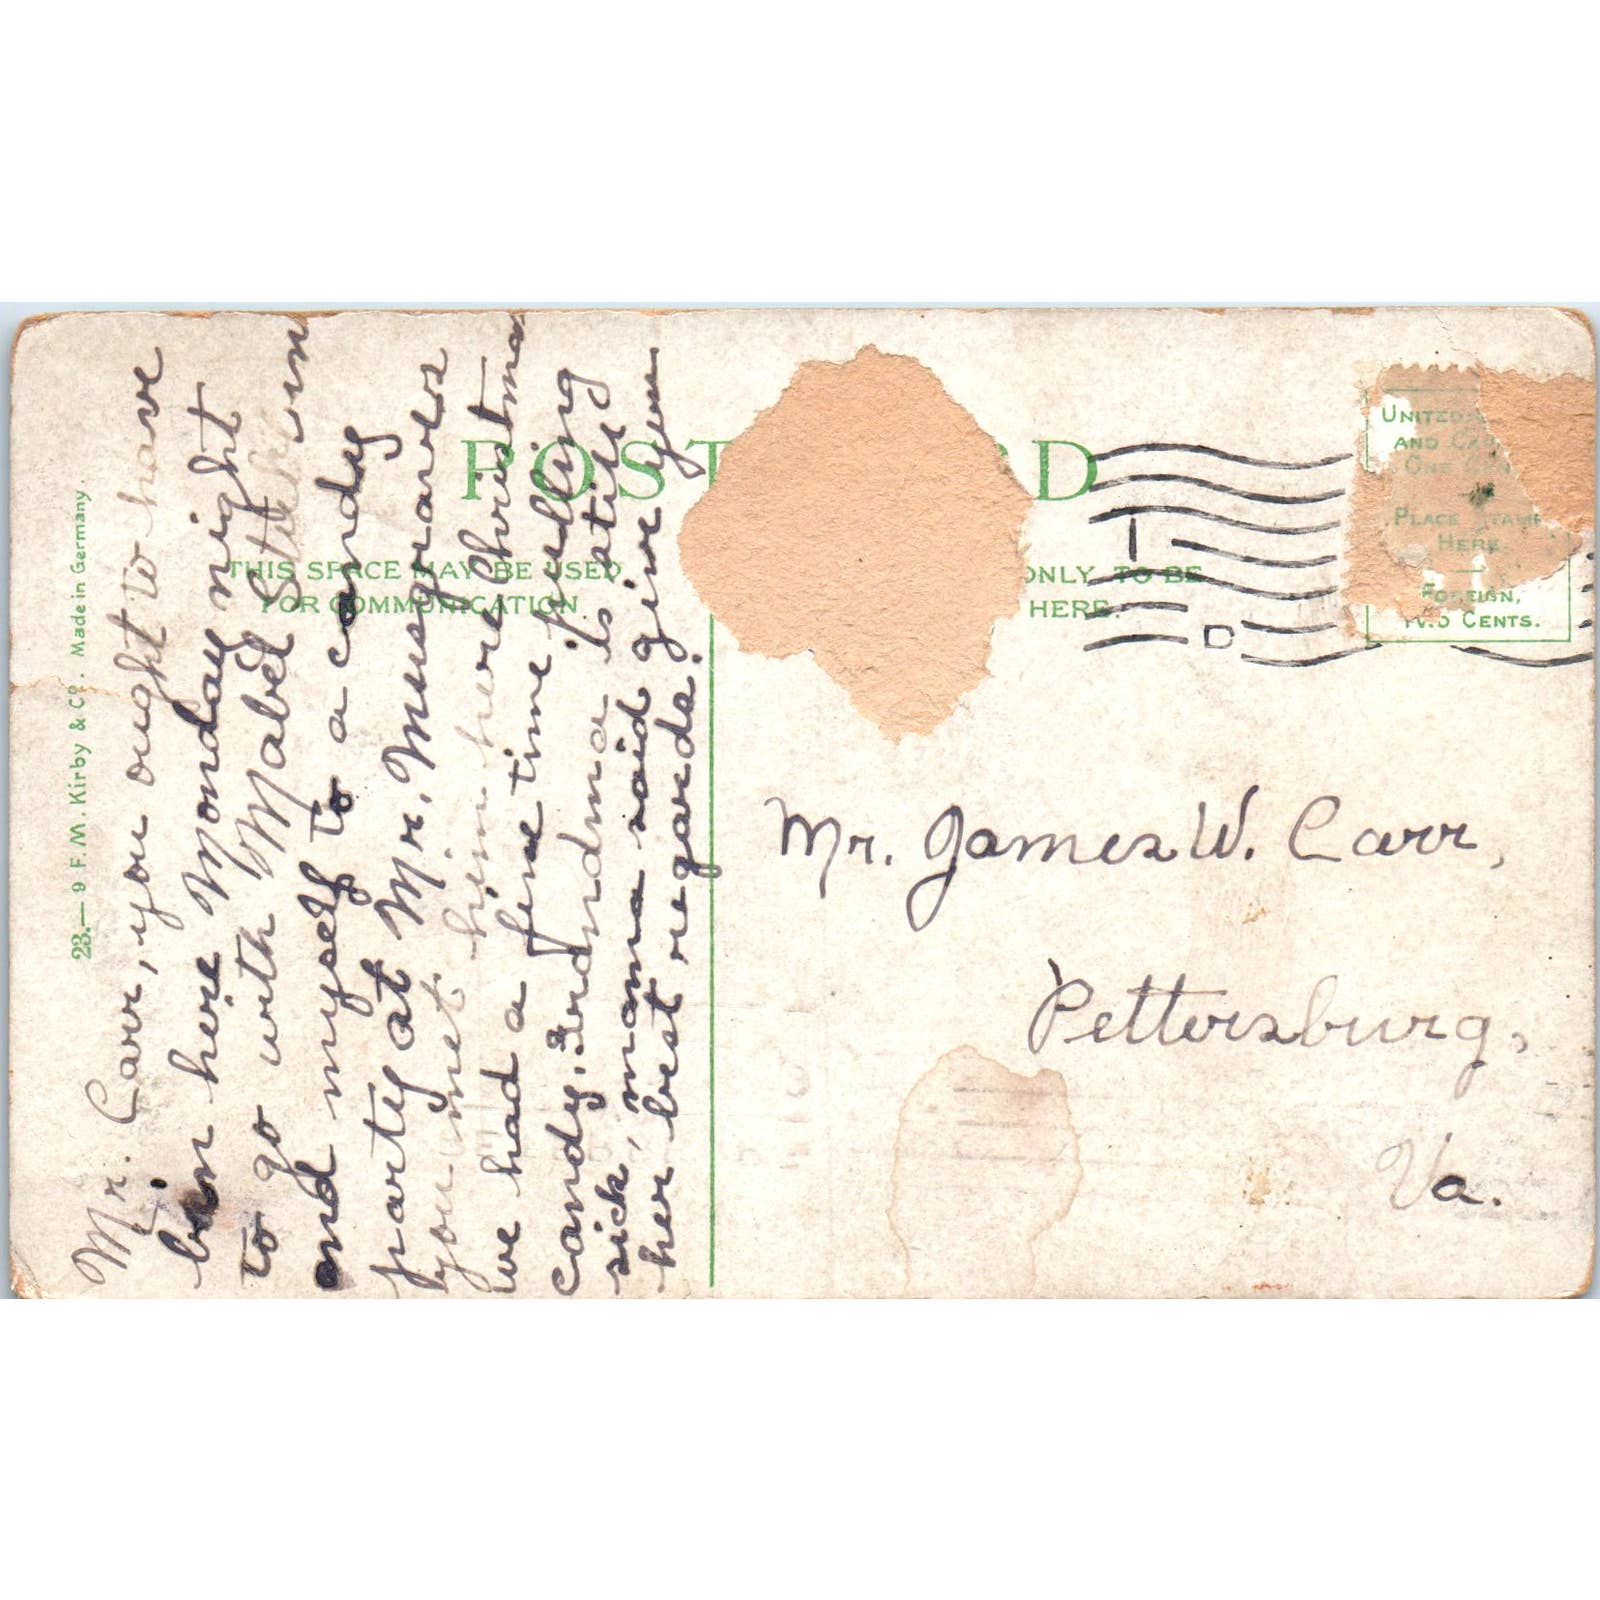 23.—9 F. M. Kirby & Co. Made in Germany.
Mr. Carr, you ought to have
bin heire Monday night
to go with Mabel
and myself to a candy
party at Mr. Musgraves
you met him here Christmas
we had a fine time pulling
candy. Grandma is still
sick, mama said give you
her best regards.
POST D
THIS SPACE MAY BE USED
FOR COMMUNICATION
ONLY TO BE
HERE.
UNITED
AND
ONE
PLACE STAMP
HERE.
FOREIGN,
TWO CENTS.
Mr. James W. Carr,
Pettersburg,
Va.